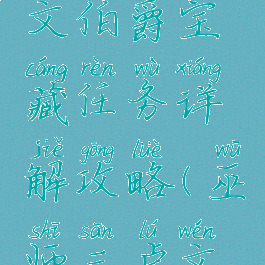 文伯爵宝
cáng rèn wù xiáng
藏任务详
jiě gōng lüè wū
解攻略(巫
shī sān lú wén
师三卢文